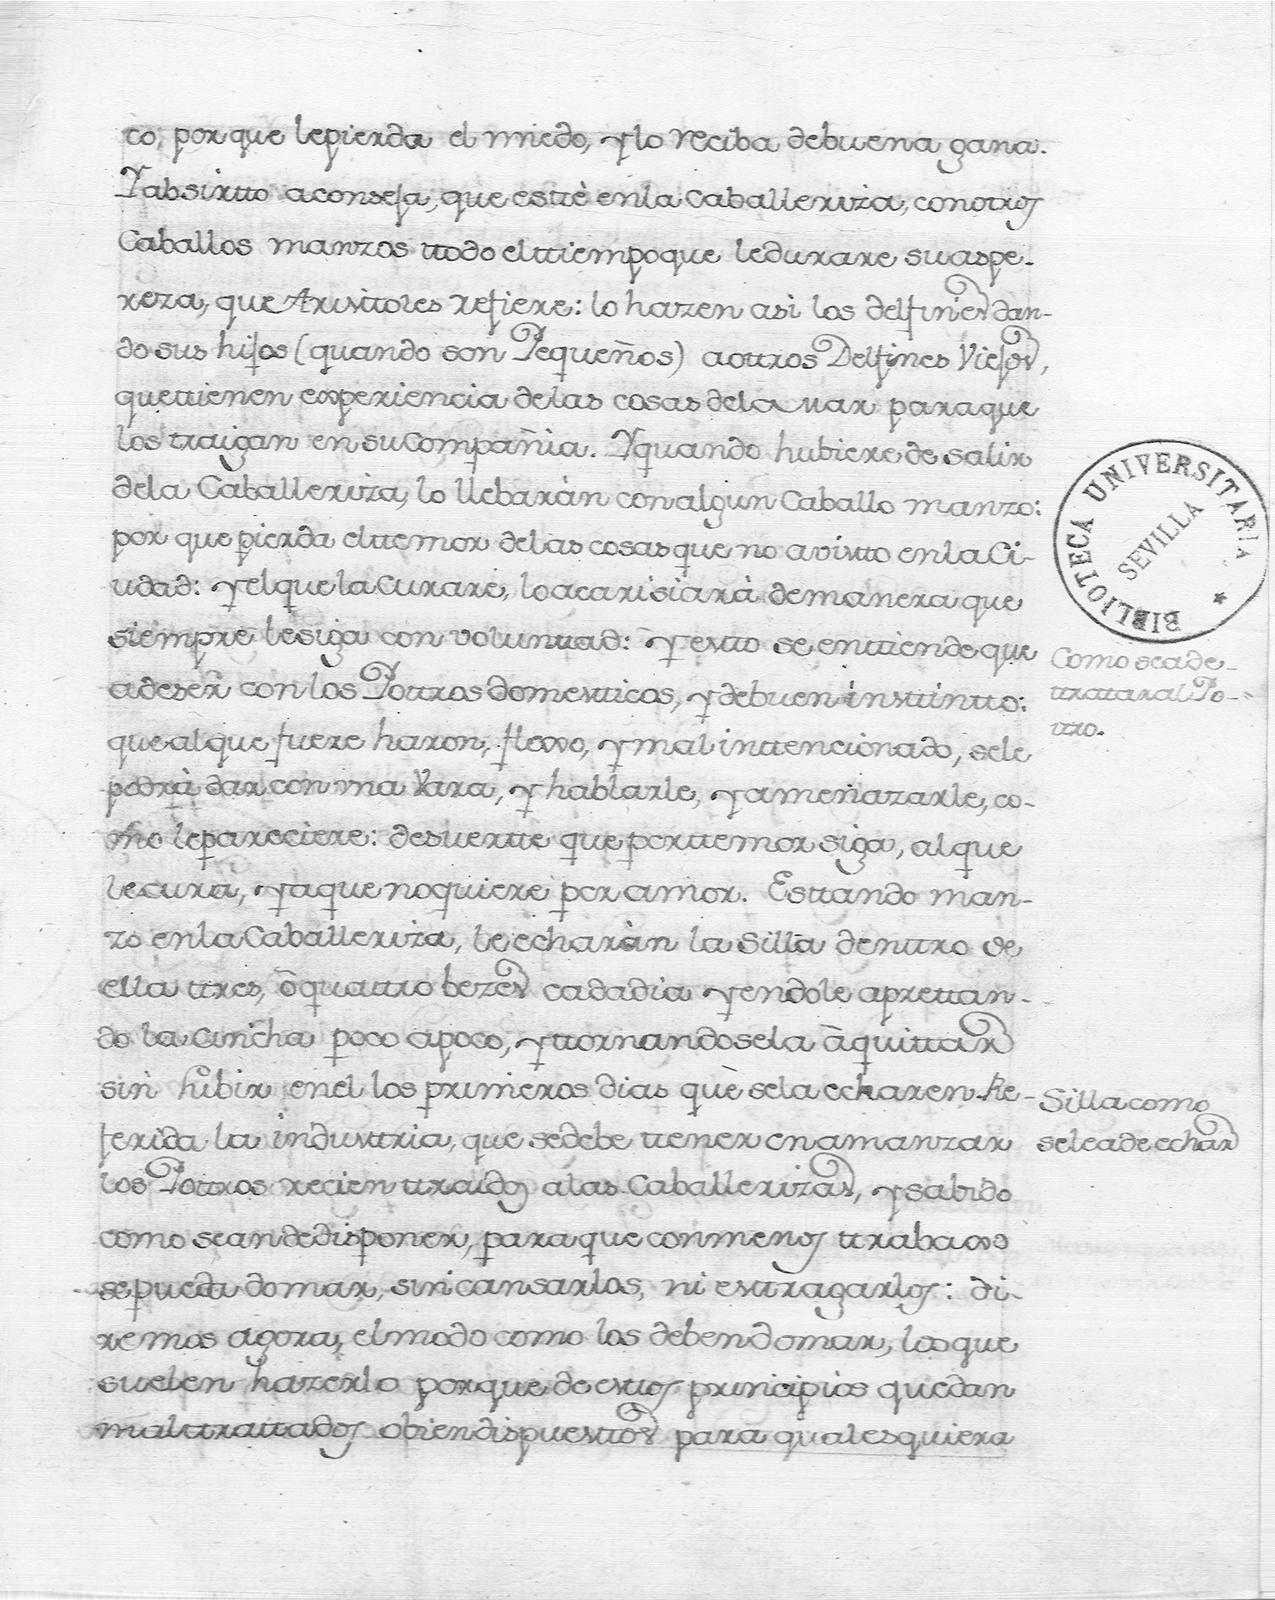 co, por que lepierda el miedo, y lo reciba debuena gana.
Yabsirtto aconseja, que estè enla Caballeriza, conotros
Caballos manzos ttodo elttiempoque ledurare suaspe-
reza, que Aristtoles refiere: lo hazen asi los delfines dan-
do sus hijos (quando son Pequeños) aottros Delfines Viejos,
quettienen experiencia delas cosas dela mar paraque
los traigan en su Compañia. Y quando hubiere de salir
dela Caballeriza, lo llebaràn con algun Caballo manzo:
por que pierda elttemor delas cosas que no a visto enla Ci-
udad: y elque la Curare, lo acarisiarà demanera que
siempre lesiga con volunttad: y estto se enttiende que
adeser con los Pottros domestticos, y debuen insttintto:
que alque fuere haron, flexo, y mal inttencionado, sele
podrà dar con una Vara, y hablarle, y amenazarle, co-
mo lepareciere: desuertte que porttemor siga, alque
lecura, yaque noquiere por amor. Esttando man-
zo enla Caballeriza, le echaràn la Silla denttro de
ella ttres, ò quattro bezes cada dia yendole aprettan-
do la cincha poco apoco, y ttornandosela à quittar
sin subir en el los primeros dias què sela echaren. Re-
ferida la industtria, que sedebe ttener en amanzar
los Pottros recien ttraidos alas Caballerizas, y sabido
como seandedisponer, para que conmenos ttrabaxo
sepueda domar, sin cansarlos, ni esttragarlos: di-
remos agora, elmodo como los debendomar, los que
suelen hazerlo porque de esttos principios quedan
malttrattados obiendispuesttos para qualesquiera
BIBLIOTECA UNIVERSITARIA
SEVILLA
Como seade-
ttrattar al Po-
ttro.
Silla como
seleade echar